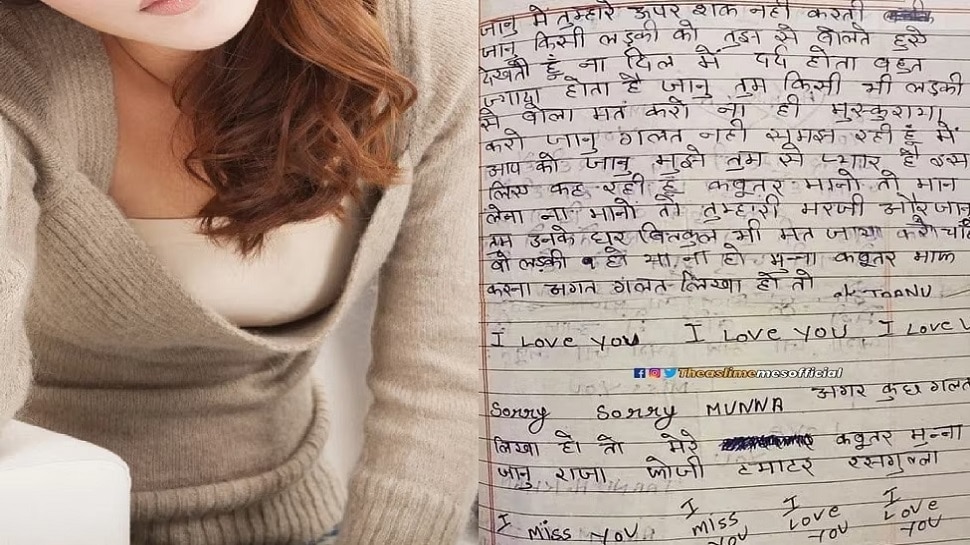 जानु में तुम्हारे ऊपर शक नही करती
जानु किसी लड़की को तुझ से बोलते हुऐ
देखती हूँ ना दिल में दर्द होता बहुत
ज्यादा होता है जानु तुम किसी भी लड़की
से बोला मत करो ना ही मुस्कुराया
करो जानु गलत नही समझ रही हूँ में
आप को जानु मुझे तुम से प्यार है इस
लिए कह रही हूँ कबूतर मानो तो मान
लेना ना मानो तो तुम्हारी मरजी और जानु
तुम उनके घर बिलकुल भी मत जाया करो चाहे
वो लड़की हो या ना हो मुन्ना कबूतर माफ
करना अगर गलत लिखा हो तो ok JAANU
I LOVE YOU I LOVE YOU I LOVE
Theaslimemesofficial
Sorry Sorry MUNNA अगर कुछ गलत
लिखा हो तो मेरे कबूतर मुन्ना
जानु राजा टमाटर रसगुल्ला
I MISS YOU I MISS YOU I LOVE YOU I LOVE YOU